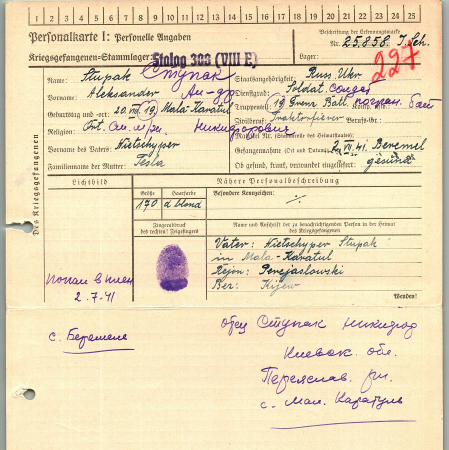 1 2 3 4 5 6 7 8 9 10 11 12 13 14 15 16 17 18 19 20 21 22 23 24 25
Personalkarte I: Personelle Angaben
Beschriftung der Erkennungsmarke
Nr. 25.858. J. Sch.
Kriegsgefangenen-Stammlager: Stalag 383 (VIII E)
Lager:
227
Des Kriegsgefangenen
Name: Stupak Ступак
Staatsangehörigkeit: Russ. Ukr
Vorname: Aleksander Ал-др
Dienstgrad: Soldat солдат
Geburtstag und -ort: 20. VIII. 19 Mala Karatul
Truppenteil: 19 Grenz Batl. погран. бат
Religion: Ort.
Никидорович
Zivilberuf: Berufs-Gr.:
Vorname des Vaters: Nietschyper
Gefangennahme (Ort und Datum): 2. VII. 41. Beremel
Familienname der Mutter: Tesla
Ob gesund, krank, verwundet eingeliefert: gesund
Lichtbild
Nähere Personalbeschreibung
Größe Haarfarbe Besondere Kennzeichen:
170 d blond
Fingerabdruck des rechten! Zeigefingers
Name und Anschrift der zu benachrichtigenden Person in der Heimat des Kriegsgefangenen
Vater: Nietschyper Stupak
in Mala-Karatul
Rejon: Perejaslowski
Ber: Kijew
Wenden!
попал в плен
2.7-41
с. Беремеле
отец Ступак Никидор
Киевск. обл.
Переяслав. рн.
с. Мал. Каратуль